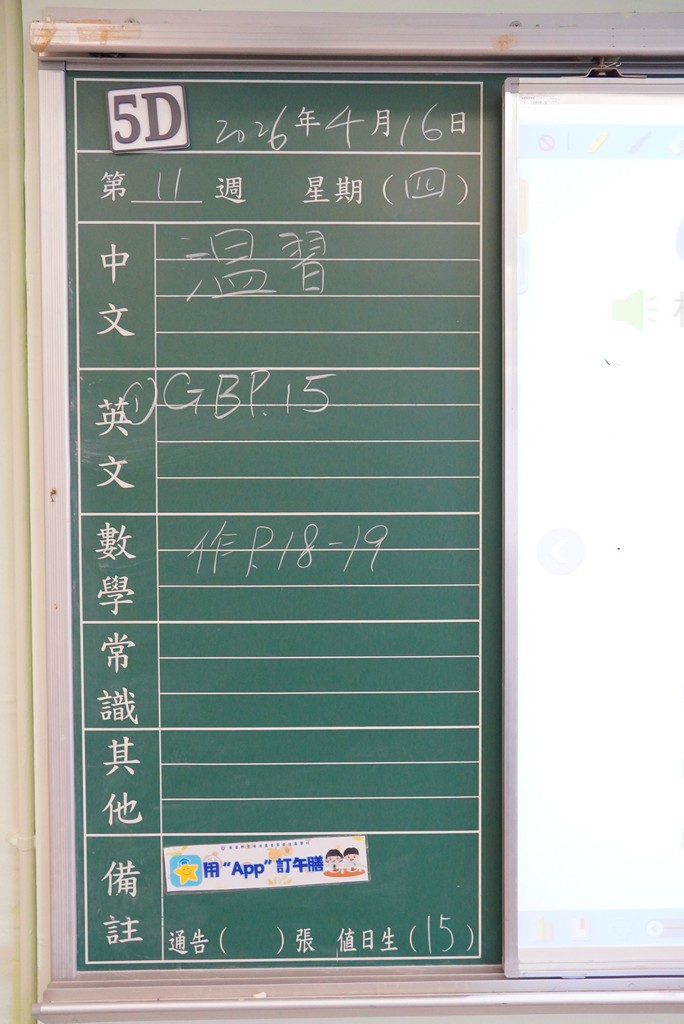 5D 2026年4月16日
第 11 週 星期(四)
中文 溫習
英文 ① GB P.15
數學 作 P.18-19
常識
其他
備註
用“App”訂午膳
通告( )張 值日生(15)